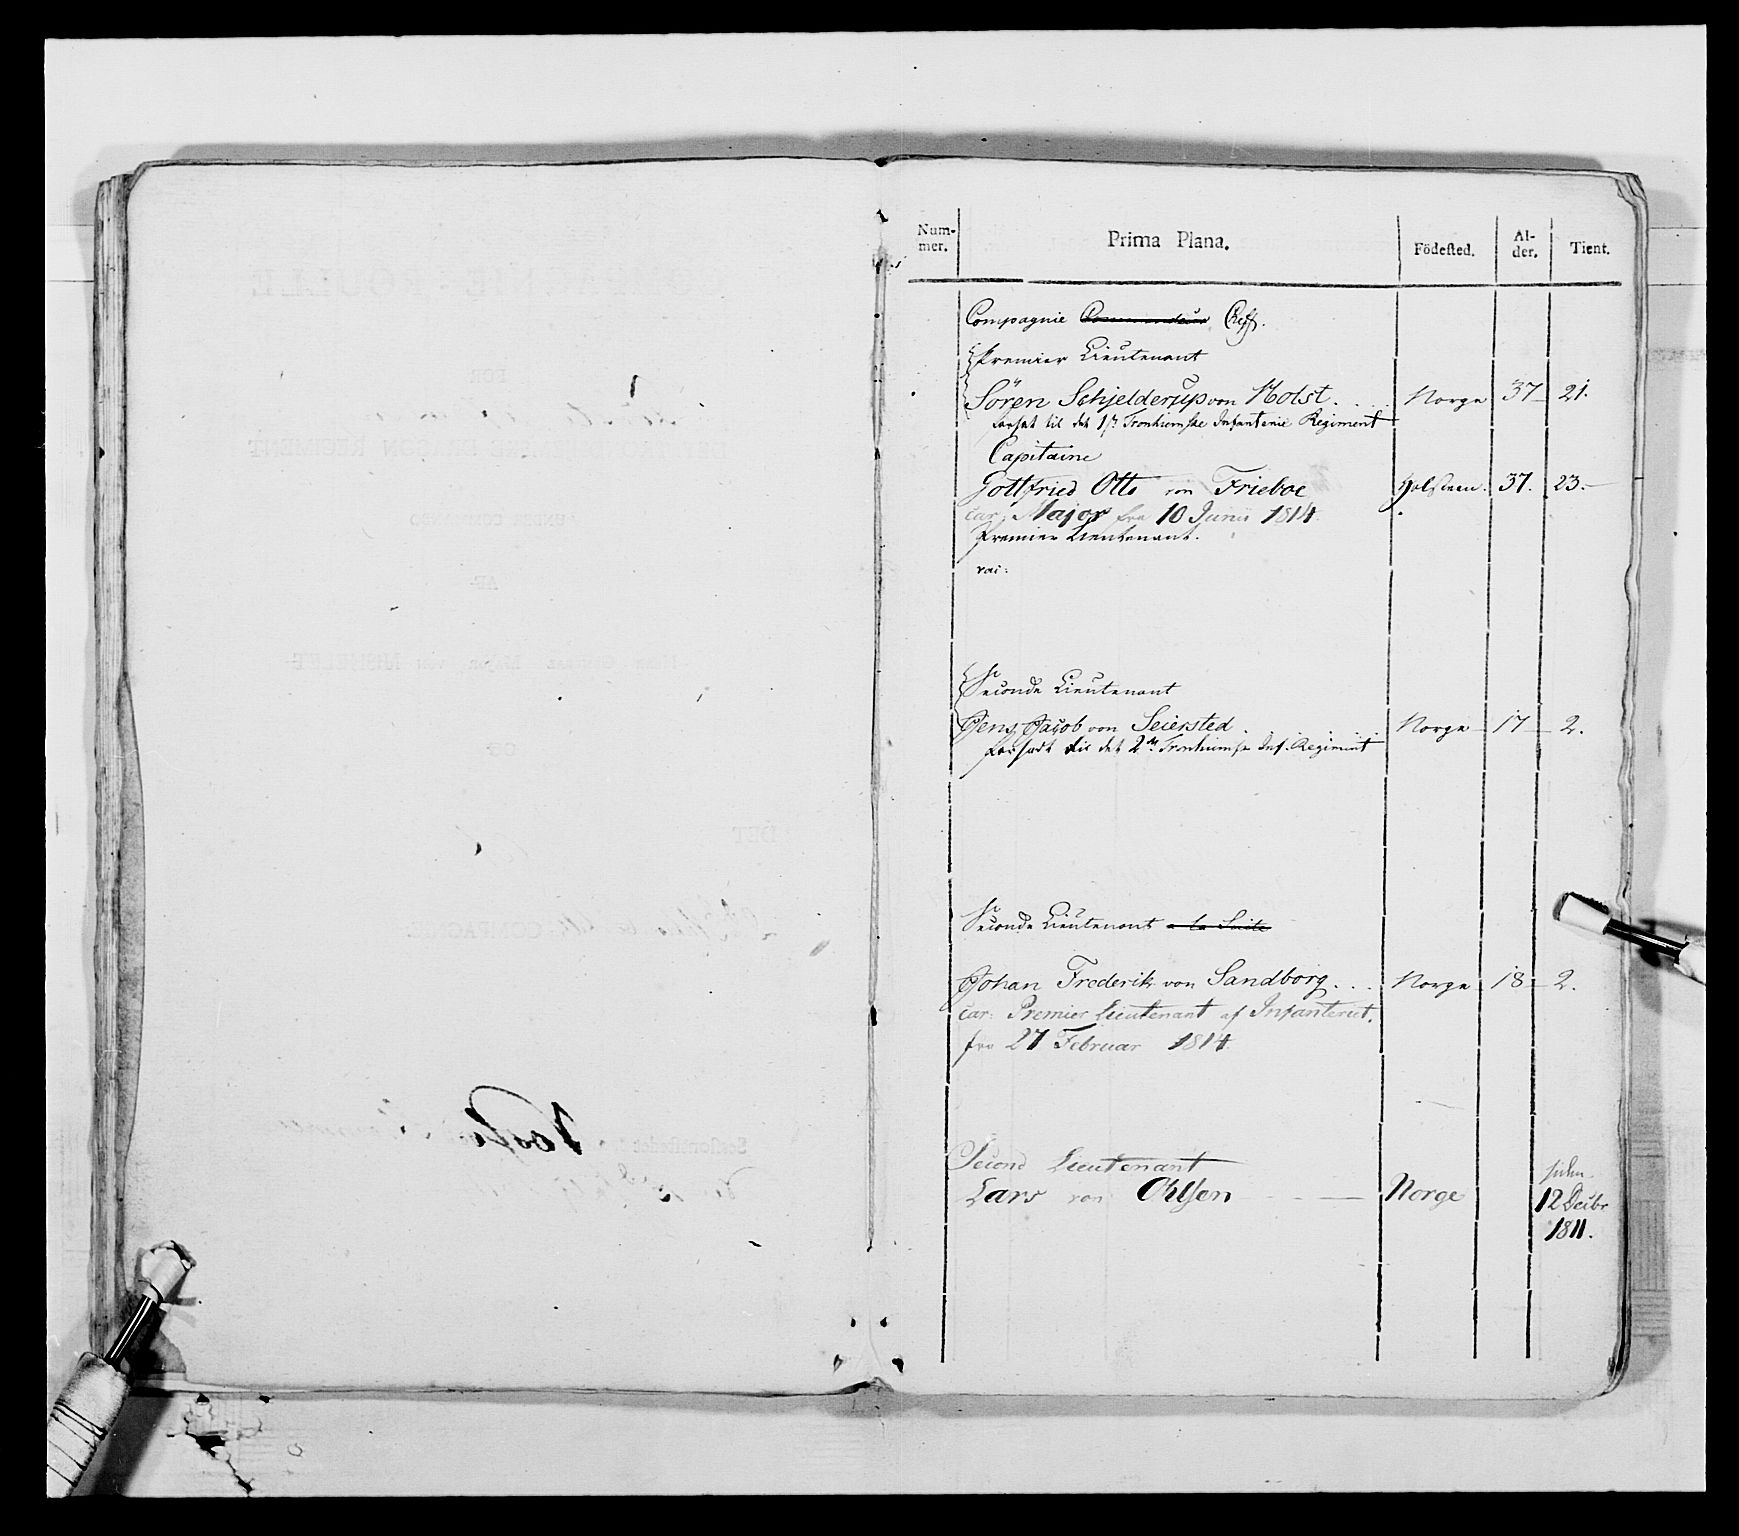 Num-
mer.
Prima Plana.
Födested.
Al-
der.
Tient.
Compagnie Commandeur Cheff.
Premier Lieutenant
Sören Schjelderup von Holst. . . Norge 37 21.
forsat til det 1ste Tronhiemske Infanterie Regiment
Capitaine
Gottfried Otto von Frieboe Holsteen. 37. 23.
car: Major fra 10 Junii 1814.
Premier Lieutenant.
vac:
Seconde Lieutenant
Jens Jacob von Seiersted . . . . Norge 17 2.
forsadt til det 2det Tronhiemske Inf. Regiment
Seconde Lieutenant a la Suite
Johan Frederik von Sandborg. . . Norge 18 2.
car: Premier Lieutenant af Infanteriet.
fra 27 Februar 1814.
Second Lieutenant
Lars von Ohlsen Norge
siden
12 Decbr
1811.